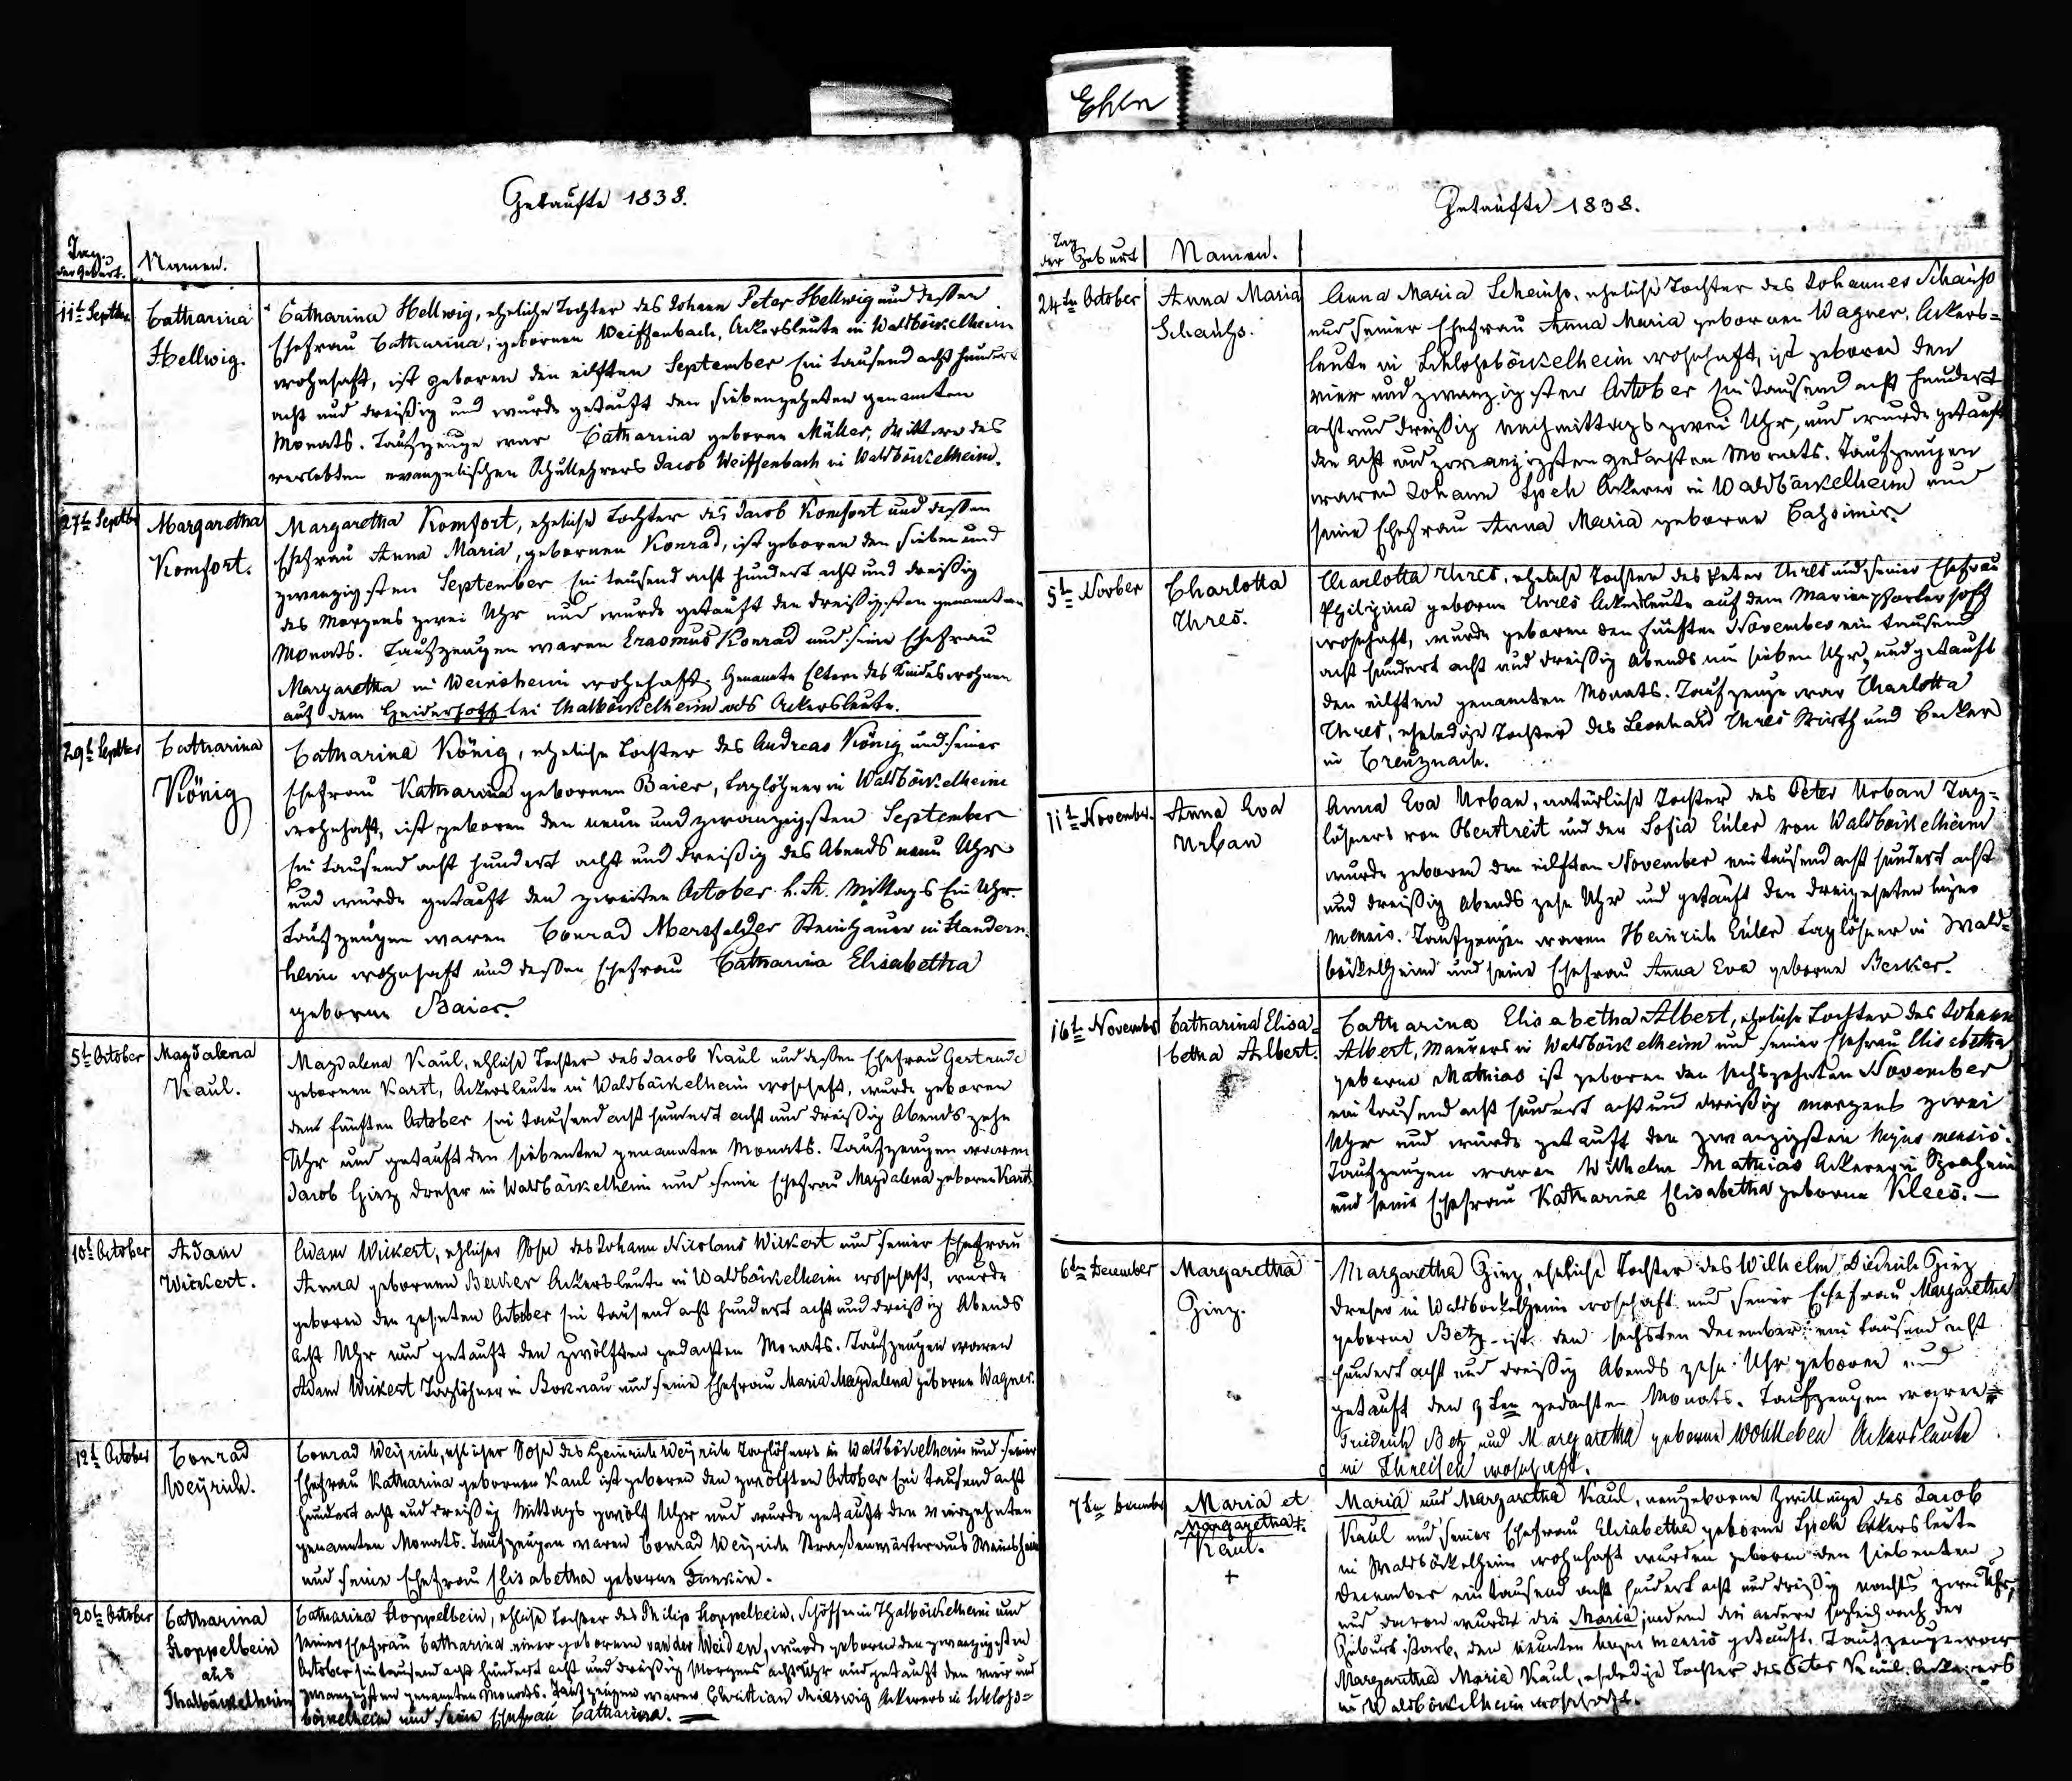 Ehln
Getaufte 1838.
Tag der Geburt.
Namen.
11t Septbr.
Catharina
Hellwig.
Catharina Hellwig, eheliche Tochter des Johann Peter Hellwig und dessen
Ehefrau Catharina, gebornen Weissenbach, Ackersleute in Waldböckelheim
wohnhaft, ist geboren den eilften September Ein tausend acht hundert
acht und dreißig und wurde getauft den siebenzehnten genannten
Monats. Taufzeuge war Catharina geborne Müller, Wittwe des
verlebten evangelischen Schullehrers Jacob Weissenbach in Waldböckelheim.
27t Septbr
Margaretha
Komfort.
Margaretha Komfort, eheliche Tochter des Jacob Komfort und dessen
Ehefrau Anna Maria, gebornen Konrad, ist geboren den sieben und
zwanzigsten September Ein tausend acht hundert acht und dreißig
des Morgens zwei Uhr und wurde getauft den dreißigsten genannten
Monats. Taufzeugen waren Erasmus Konrad und seine Ehefrau
Margaretha in Weinsheim wohnhaft. Genannte Eltern des Kindes wohnen
auf dem Heiderhoff bei Thalböckelheim als Ackersleute.
29t Septber
Catharina
König
Catharina König, eheliche Tochter des Andreas König und seiner
Ehefrau Katharina gebornen Baier, Taglöhner in Waldböckelheim
wohnhaft, ist geboren den neun und zwanzigsten September
Ein tausend acht hundert acht und dreißig des Abends neun Uhr
und wurde getauft den zweiten October Mittags Ein Uhr.
Taufzeugen waren Conrad Mersfelder Steinhauer in Standern-
heim wohnhaft und dessen Ehefrau Catharina Elisabetha
geborne Baier.
5t October
Magdalena
Kaul.
Magdalena Kaul, eheliche Tochter des Jacob Kaul und dessen Ehefrau Gertrude
gebornen Karst, Ackersleute in Waldböckelheim wohnhaft, wurde geboren
den fünften October Ein tausend acht hundert acht und dreißig Abends zehn
Uhr und getauft den siebenten genannten Monats. Taufzeugen waren
Jacob Ginz Dreher in Waldböckelheim und seine Ehefrau Magdalena geborne Karst.
10t October
Adam
Wickert.
Adam Wickert, ehlicher Sohn des Johann Nicolaus Wickert und seiner Ehefrau
Anna gebornen Becker Ackersleute in Waldböckelheim wohnhaft, wurde
geboren den zehnten October Ein tausend acht hundert acht und dreißig Abends
acht Uhr und getauft den zwölften gedachten Monats. Taufzeugen waren
Adam Wickert Taglöhner in Bockenau und seine Ehefrau Maria Magdalena geborne Wagner.
12t October
Conrad
Weyrich.
Conrad Weyrich, ehlicher Sohn des Heinrich Weyrich Taglöhners in Waldböckelheim und seiner
Ehefrau Katharina gebornen Kaul ist geboren den zwölften October Ein tausend acht
hundert acht und dreißig Mittags zwölf Uhr und wurde getauft den vierzehnten
genannten Monats. Taufzeugen waren Conrad Weyrich Straßenwärter aus Weinsheim
und seine Ehefrau Elisabetha geborne
20t October
Catharina
Hoppelbein
aus
Thalböckelheim
Catharina Hoppelbein, eheliche Tochter des Philip Hoppelbein, Schöffen in Thalböckelheim und
seiner Ehefrau Catharina einer gebornen van der Weiden, wurde geboren den zwanzigsten
October Ein tausend acht hundert acht und dreißig Morgens acht Uhr und getauft den vier und
zwanzigsten genannten Monats. Taufzeugen waren Christian Ackerers in Schloss=
böckelheim und seine Ehefrau Catharina.
Getaufte 1838.
Tag der Geburt
Namen.
24ten October
Anna Maria
Schauss.
Anna Maria Schauss, eheliche Tochter des Johannes Schauss
und seiner Ehefrau Anna Maria gebornen Wagner, Ackers=
leute in Schlossböckelheim wohnhaft, ist geboren den
vier und zwanzigsten October Ein tausend acht hundert
acht und dreißig nachmittags zwei Uhr, und wurde getauft
den acht und zwanzigsten gedachten Monats. Taufzeugen
waren Johann Speh Ackerer in Waldböckelheim und
seine Ehefrau Anna Maria geborne Cassimir.
5t Novber
Charlotta
Thres.
Charlotta Thres, eheliche Tochter des Peter Thres und seiner Ehefrau
Philipina geborne Thres Ackersleute auf dem Marienpforter Hoff
wohnhaft, wurde geboren den fünften November ein tausend
acht hundert acht und dreißig Abends um sieben Uhr, und getauft
den eilften genannten Monats. Taufzeuge war Charlotta
Thres, eheledige Tochter des Leonhard Thres Wirth und Becker
in Creuznach.
11t November.
Anna Eva
Urban
Anna Eva Urban, natürliche Tochter des Peter Urban Tag=
löhners von Oberstreit und der Sofia Euler von Waldböckelheim
wurde geboren den eilften November ein tausend acht hundert acht
und dreißig Abends zehn Uhr und getauft den dreizehnten hujus
mensis. Taufzeugen waren Heinrich Euler Taglöhner in Wald=
böckelheim und seine Ehefrau Anna Eva geborne Becker.
16t November
Catharina Elisa=
betha Albert.
Catharina Elisabetha Albert, eheliche Tochter des Johann
Albert, Maurers in Waldböckelheim und seiner Ehefrau Elisabetha
geborne Mathias ist geboren den sechszehnten November
ein tausend acht hundert acht und dreißig morgens zwei
Uhr und wurde getauft den zwanzigsten hujus mensis.
Taufzeugen waren Wilhelm Mathias Ackerer in Sponheim
und seine Ehefrau Katharine Elisabetha geborne Klees. —
6ten December
Margaretha
Ginz.
Margaretha Ginz eheliche Tochter des Wilhelm Ginz
Dreher in Waldböckelheim wohnhaft und seiner Ehefrau Margaretha
geborne Betz ist den sechsten December ein tausend acht
hundert acht und dreißig Abends zehn Uhr geboren und
getauft den 9ten gedachten Monats. Taufzeugen waren
Friedrich Betz und Margaretha geborne Wohlleben Ackersleute
in Threisen wohnhaft.
7ten December
Maria et
Margaretha
Kaul.
+
Maria und Margaretha Kaul, neugeborne Zwillinge des Jacob
Kaul und seiner Ehefrau Elisabetha geborne Speh Ackersleute
in Waldböckelheim wohnhaft wurden geboren den siebenten
December ein tausend acht hundert acht und dreißig nachts zwei Uhr,
und davon wurde die Maria, indem die andere sogleich nach der
Geburt starb, den neunten hujus mensis getauft. Taufzeuge war
Margaretha Maria Kaul, eheledige Tochter des Peter Kaul Ackerers
in Waldböckelheim wohnhaft.